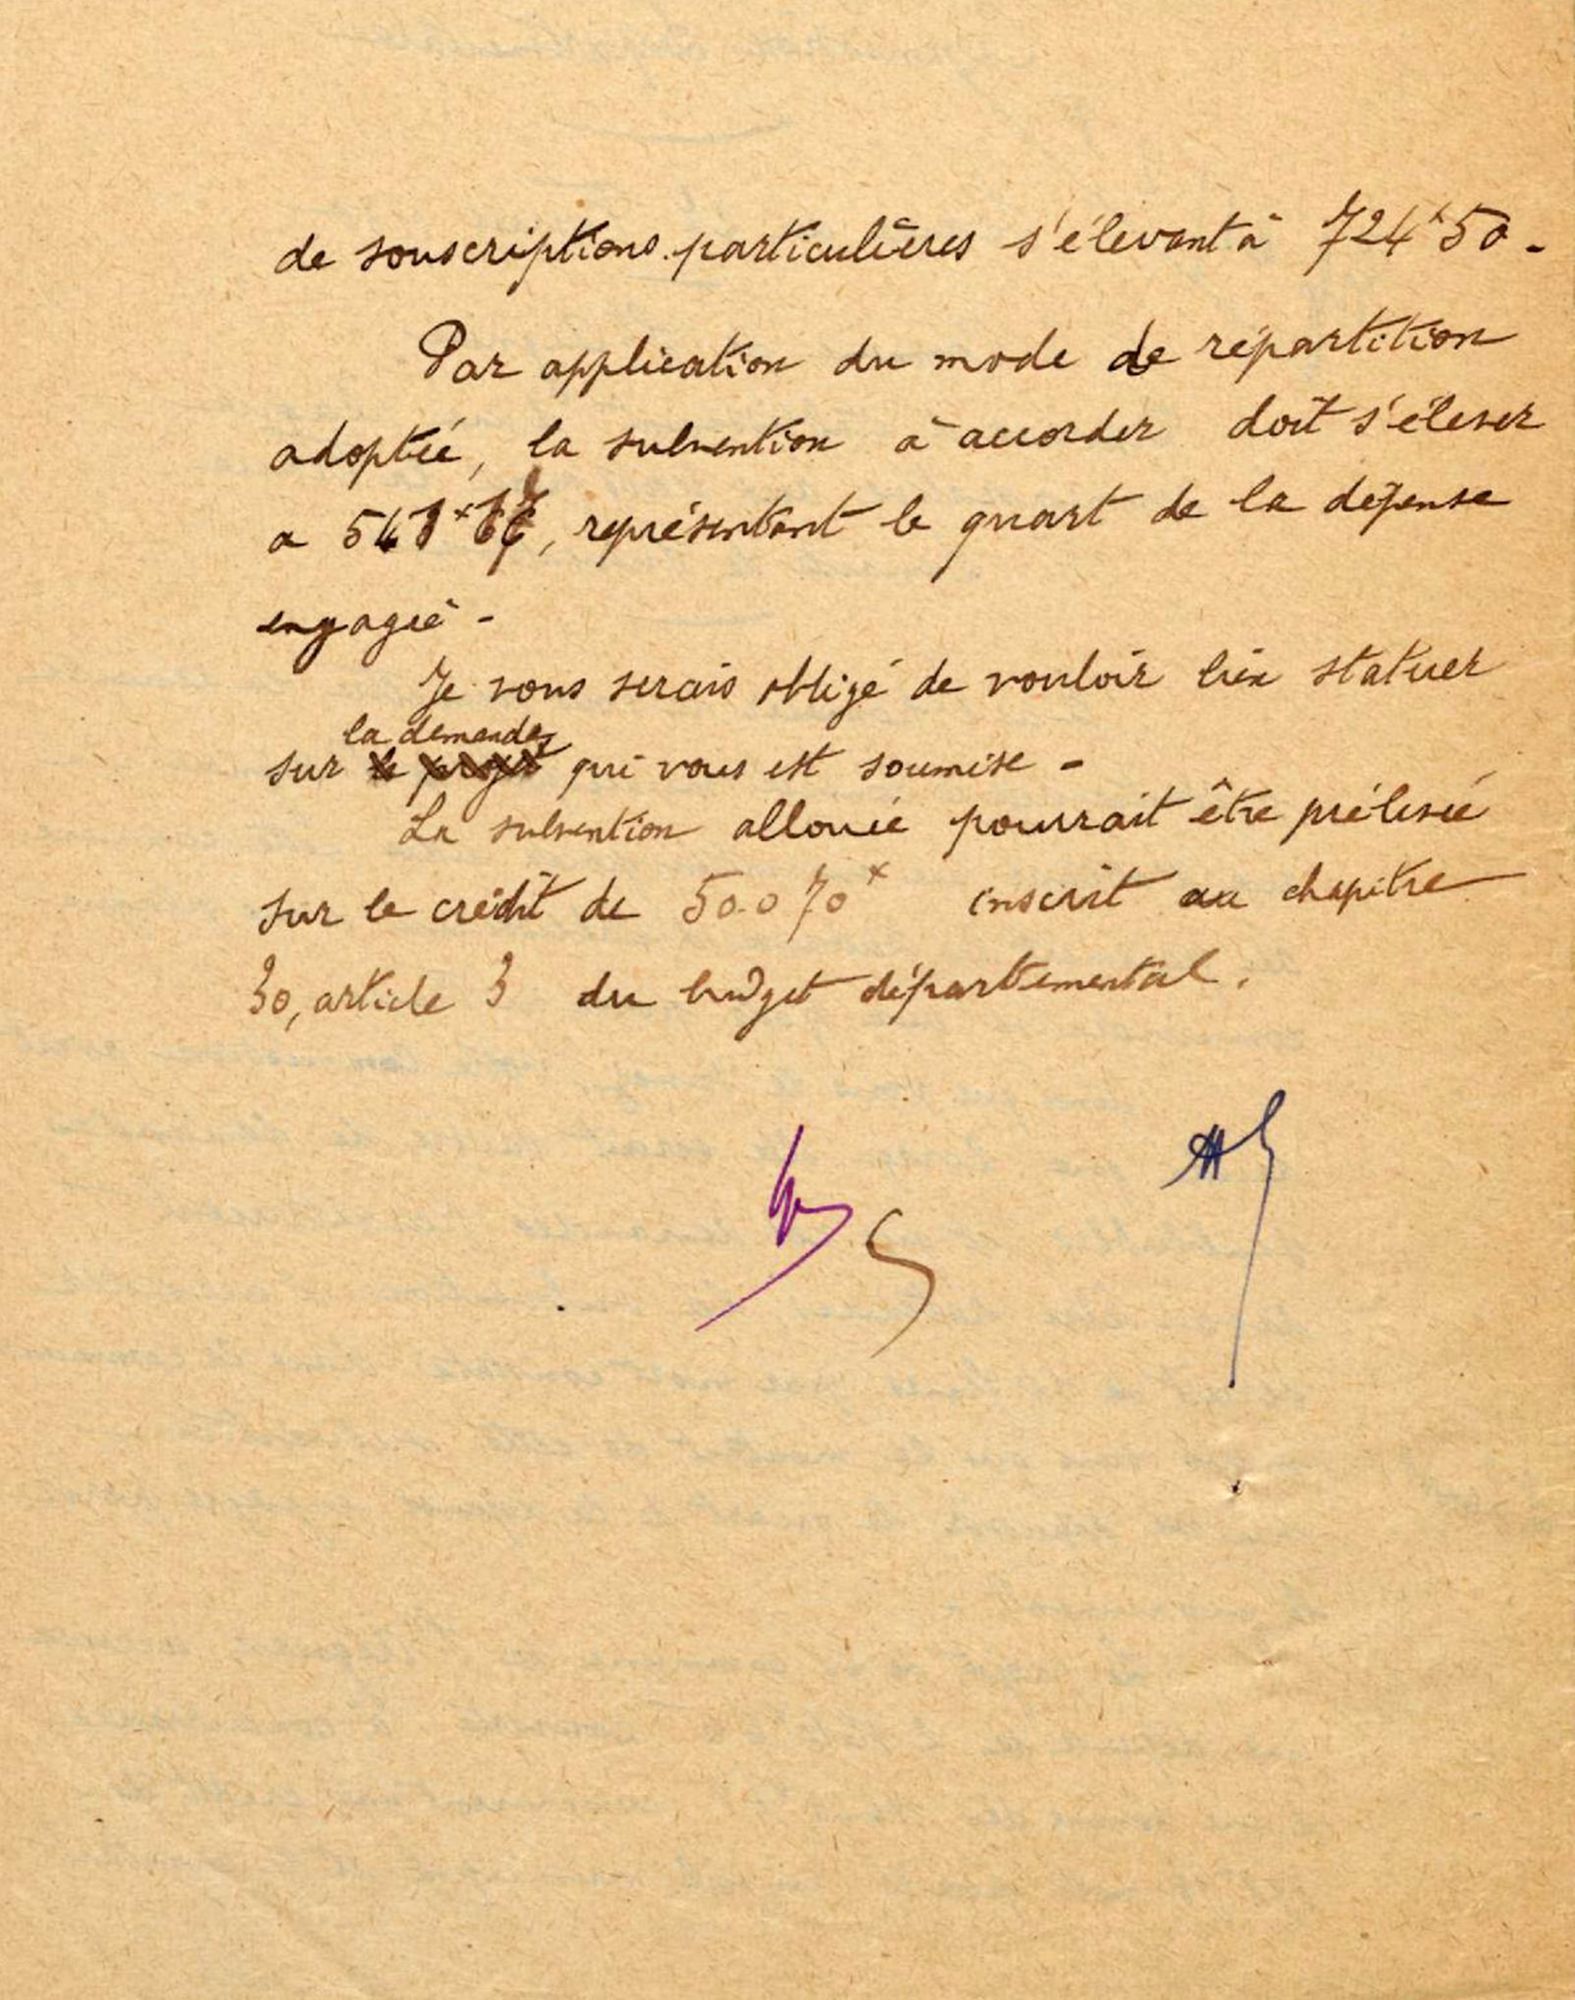 de souscriptions particulières s'élevant à 724ᶠ50 -
Par application du mode de répartition
adoptée, la subvention à accorder doit s'élever
a, représentant le quart de la dépense
engagée -
Je vous serais obligé de vouloir bien statuer
la demande
sur le projet qui vous est soumise -
La subvention allouée pourrait être prélevée
sur le crédit de 50.070ᶠ inscrit au chapitre
30, article 3 du budget départemental.